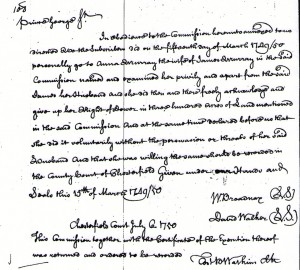 Prince George Sct
In obedience to the Commission hereunto annexed to us
directed We the Subscribers did on the fifteenth day of March 1749/50
personally go to Anna Murray the wife of James Murray in the said
Commission named and examined her privily and apart from the said
James her Husband and she did then and there freely acknowledge and
give up her Right of Dower in three hundred acres of Land mentioned
in the said Commission and at the same time declared before us that
she did it voluntarily without the persuasion or threats of her said
Husband And that she was willing the same should be recorded in
the County Court of Chesterfield Given under our Hands and
Seals this 15th of March 1749/50
W Broadnax (L.S)
David Walker (L.S)
Chesterfield Court July 1750
This Commission together with the Certificate of the Execution thereof
was returned and ordered to be recorded
Watkins Clk